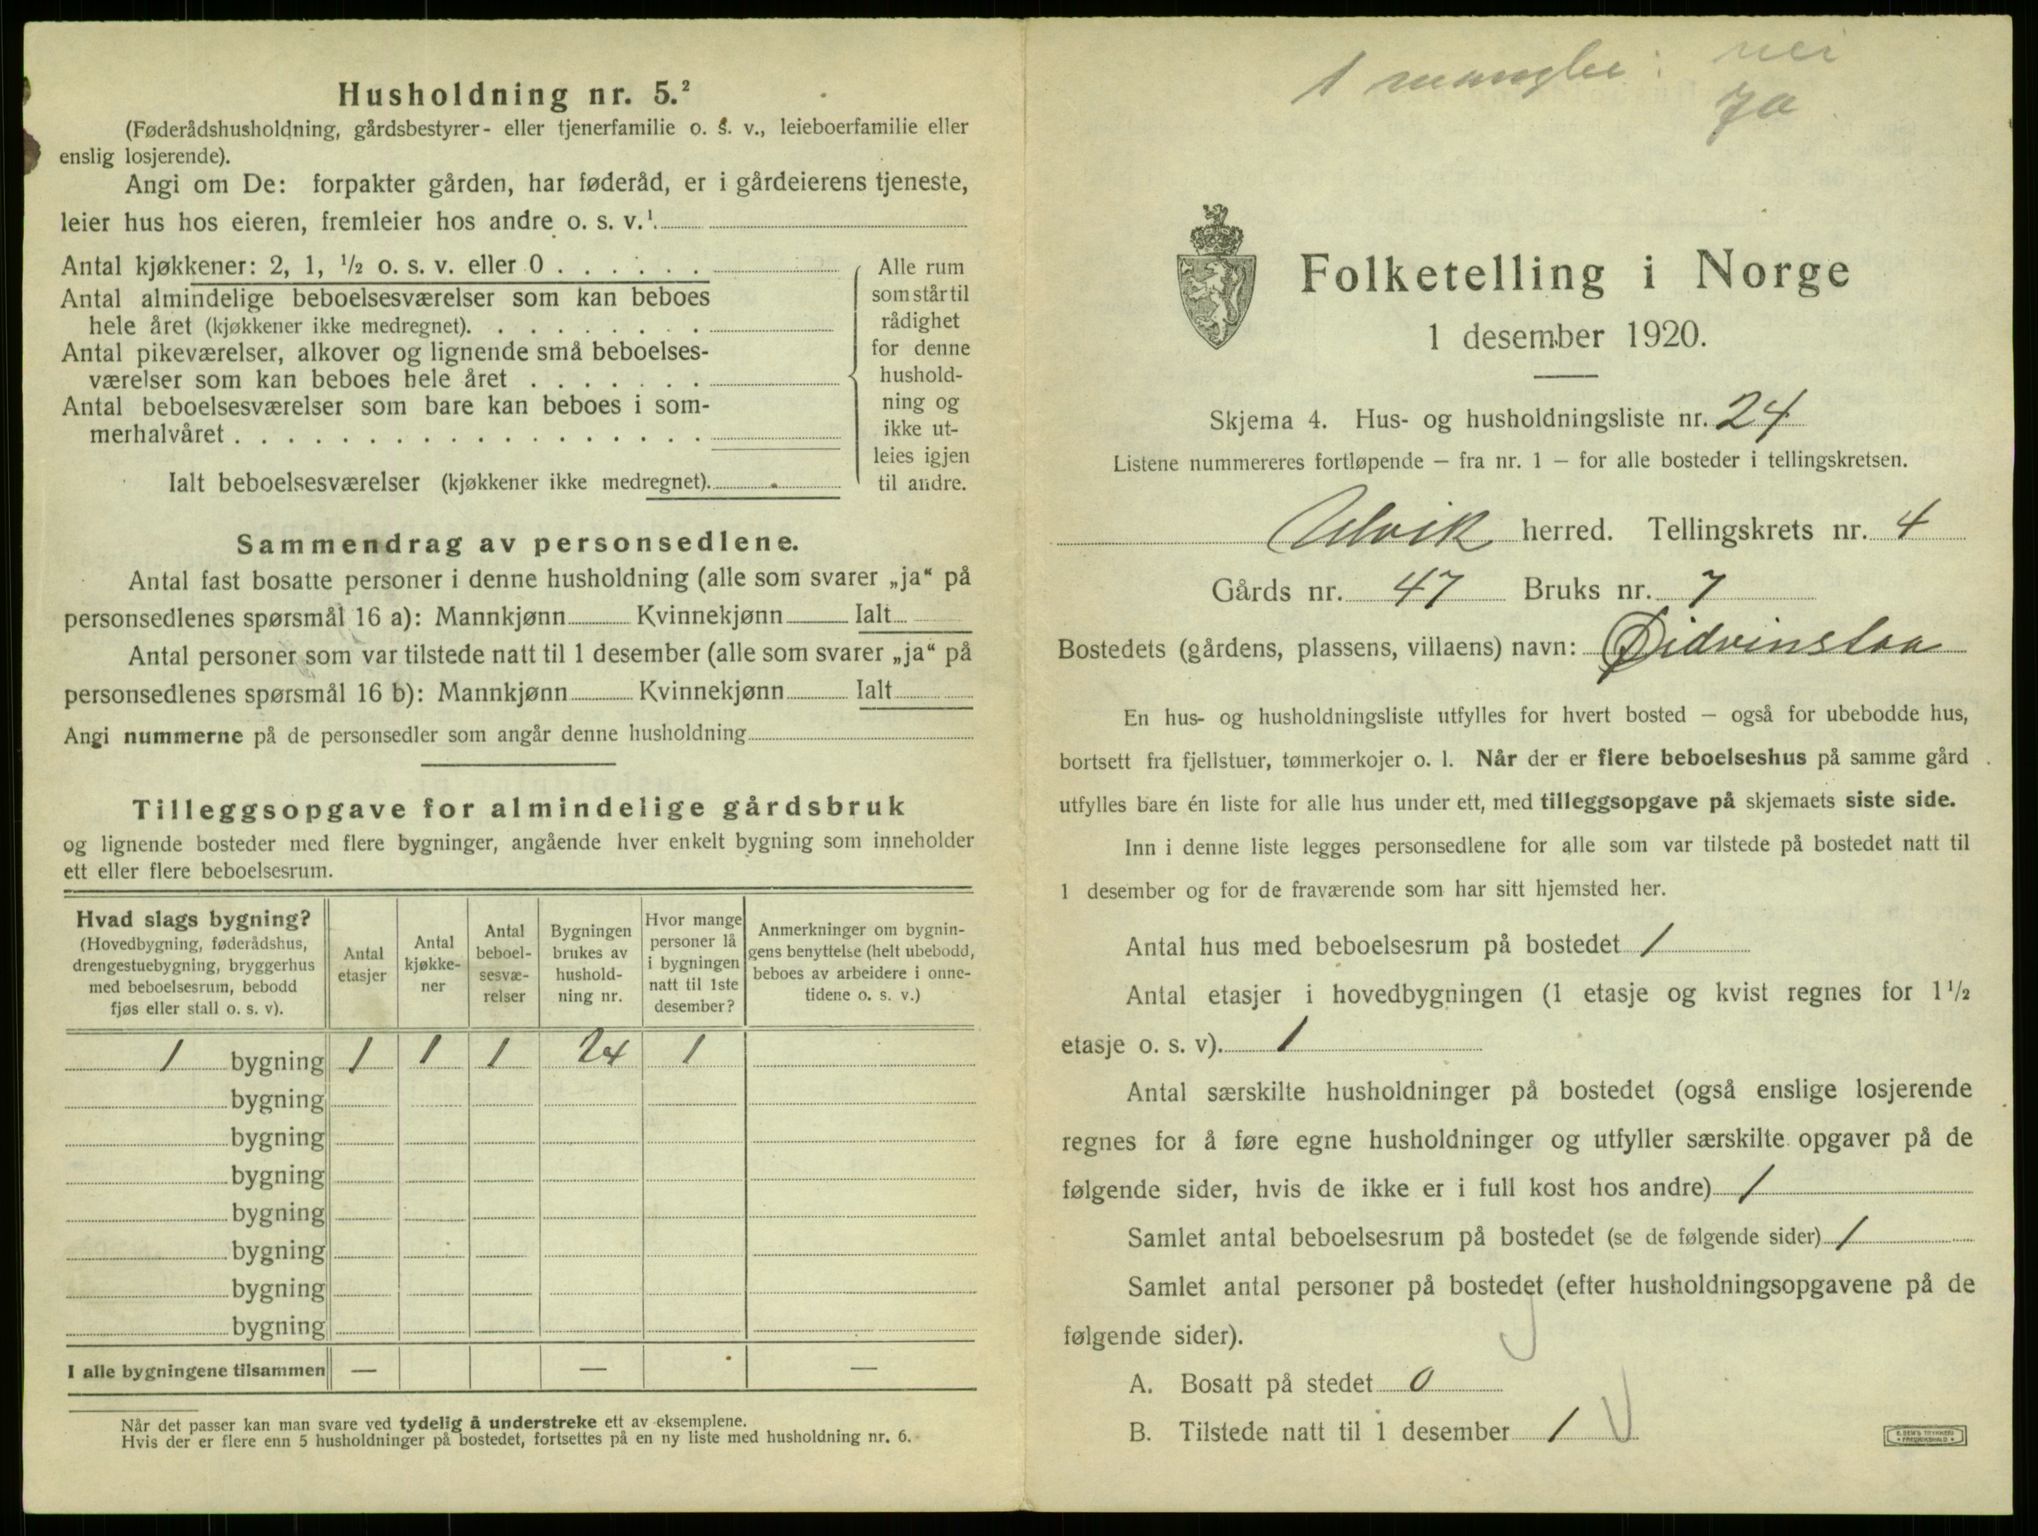 Husholdning nr. 5.²
(Føderådshusholdning, gårdsbestyrer- eller tjenerfamilie o. s. v., leieboerfamilie eller
enslig losjerende).
Angi om De: forpakter gården, har føderåd, er i gårdeierens tjeneste,
leier hus hos eieren, fremleier hos andre o. s. v.¹
Antal kjøkkener: 2, 1, ½ o. s. v. eller 0 . . . . . .
Antal almindelige beboelsesværelser som kan beboes
hele året (kjøkkener ikke medregnet). . . . . . . . .
Antal pikeværelser, alkover og lignende små beboelses-
værelser som kan beboes hele året . . . . . . .
Antal beboelsesværelser som bare kan beboes i som-
merhalvåret . . . . . . . . . . . . . . . . . .
Ialt beboelsesværelser (kjøkkener ikke medregnet).
Alle rum
som står til
rådighet
for denne
hushold-
ning og
ikke ut-
leies igjen
til andre.
Sammendrag av personsedlene.
Antal fast bosatte personer i denne husholdning (alle som svarer „ja“ på
personsedlenes spørsmål 16 a): Mannkjønn Kvinnekjønn Ialt
Antal personer som var tilstede natt til 1 desember (alle som svarer „ja“ på
personsedlenes spørsmål 16 b): Mannkjønn Kvinnekjønn Ialt
Angi nummerne på de personsedler som angår denne husholdning
Tilleggsopgave for almindelige gårdsbruk
og lignende bosteder med flere bygninger, angående hver enkelt bygning som inneholder
ett eller flere beboelsesrum.
Hvad slags bygning?
(Hovedbygning, føderådshus,
drengestuebygning, bryggerhus
med beboelsesrum, bebodd
fjøs eller stall o. s. v).
Antal
etasjer
Antal
kjøkke-
ner
Antal
beboel-
sesvæ-
relser
Bygningen
brukes av
hushold-
ning nr.
Hvor mange
personer lå
i bygningen
natt til 1ste
desember?
Anmerkninger om bygnin-
gens benyttelse (helt ubebodd,
beboes av arbeidere i onne-
tidene o. s. v.)
1 bygning 1 1 1 24 1
bygning
bygning
bygning
bygning
bygning
bygning
bygning
I alle bygningene tilsammen — — —
Når det passer kan man svare ved tydelig å understreke ett av eksemplene.
Hvis der er flere enn 5 husholdninger på bostedet, fortsettes på en ny liste med husholdning nr. 6.
1 mangler: nei
ja
Folketelling i Norge
1 desember 1920.
Skjema 4. Hus- og husholdningsliste nr. 24
Listene nummereres fortløpende — fra nr. 1 — for alle bosteder i tellingskretsen.
Ulvik herred. Tellingskrets nr. 4
Gårds nr. 47 Bruks nr. 7
Bostedets (gårdens, plassens, villaens) navn: Didvinslaa
En hus- og husholdningsliste utfylles for hvert bosted — også for ubebodde hus,
bortsett fra fjellstuer, tømmerkojer o. l. Når der er flere beboelseshus på samme gård
utfylles bare én liste for alle hus under ett, med tilleggsopgave på skjemaets siste side.
Inn i denne liste legges personsedlene for alle som var tilstede på bostedet natt til
1 desember og for de fraværende som har sitt hjemsted her.
Antal hus med beboelsesrum på bostedet 1
Antal etasjer i hovedbygningen (1 etasje og kvist regnes for 1½
etasje o. s. v). 1
Antal særskilte husholdninger på bostedet (også enslige losjerende
regnes for å føre egne husholdninger og utfyller særskilte opgaver på de
følgende sider, hvis de ikke er i full kost hos andre) 1
Samlet antal beboelsesrum på bostedet (se de følgende sider) 1
Samlet antal personer på bostedet (efter husholdningsopgavene på de
følgende sider).
A. Bosatt på stedet 0
B. Tilstede natt til 1 desember 1